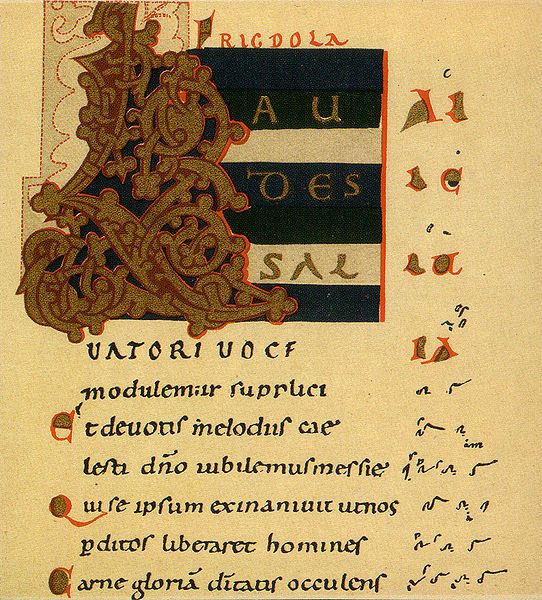 FRIGDOLA
LAU
DES
SAL
UATORI UOCE
modulemur supplici
Et deuotis melodiis cae
lesti dño iubilemus messie
Qui se ipsum exinaniuit ut nos
pditos liberaret homines
Carne gloriā dītatis occulens